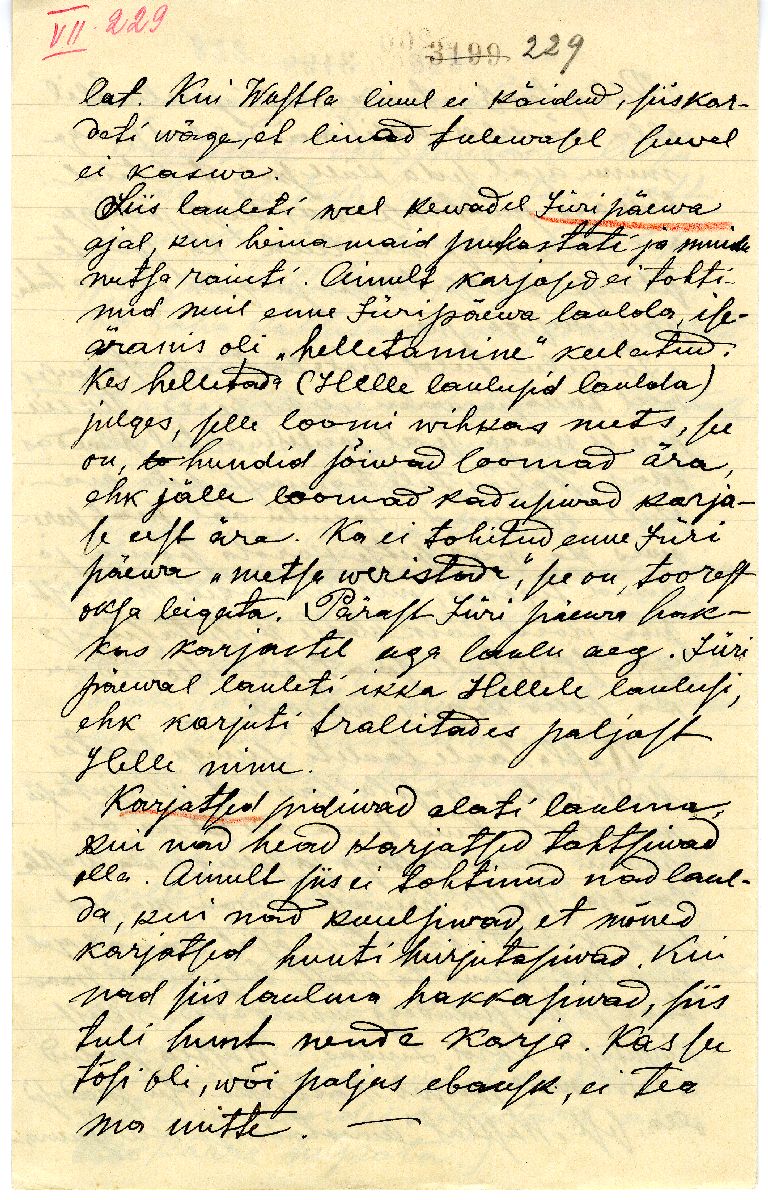 VII 229
3199 229
lat. Kui Wastla liuul ei käidud, siis kar-
deti wäga, et linad tulewasel suwel
ei kaswa.
Siis lauleti weel kewadel Jüripäewa
ajal, kui heinamaid puhastati ja muidu
metsa raiuti. Ainult karjased ei tohti-
nud meil enne Jüripäewa laulda, ise-
äranis oli „helletamine“ keelatud.
Kes helletada (Helle laulusid laulda)
julges, selle loomi wihkas mets, se
on, hundid sõiwad loomad ära,
ehk jälle loomad kadusiwad karja-
se eest ära. Ka ei tohitud enne Jüri
päewa „metsa weristada“, se on, toorest
oksa leigata. Pärast Jüri päewa hak-
kas karjastel aga laulu aeg. Jüri
päewal lauleti ikka Hellele laulusi,
ehk karjuti trallitades paljast
Helle nime.
Karjatsed pidiwad alati laulma,
kui nad head karjatsed tahtsiwad
olla. Ainult siis ei tohtinud nad laul-
da, kui nad kuulsiwad, et mõned
karjatsed hunti hirjutasiwad. Kui
nad siis laulma hakkasiwad, siis
tuli hunt nende karja. Kas se
tõsi oli, wõi paljas ebausk, ei tea
ma mitte. —